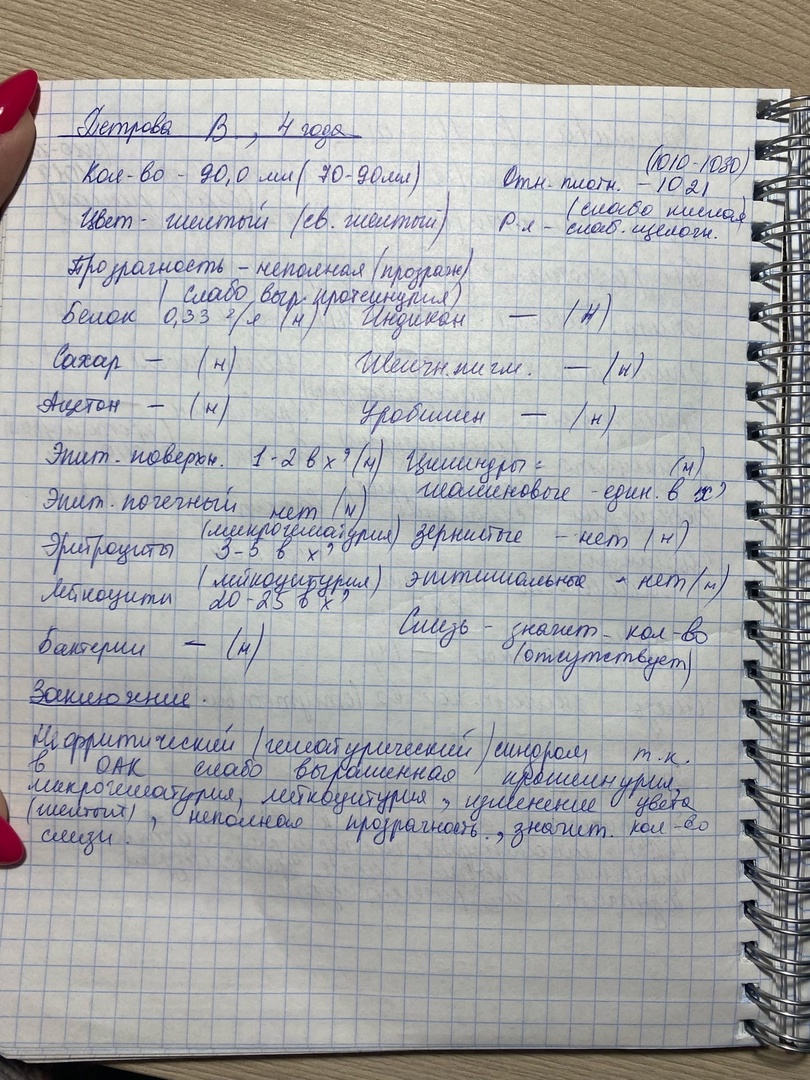 Петрова В, 4 года
Кол-во - 90,0 мл (70-90мл)
(1010-1030)
Отн. плотн. - 1021
Цвет - желтый (св. желтый)
(слабо кислая
Р.я - слаб. щелочн.
Прозрачность - неполная (прозрач)
(слабо выр. протеинурия)
Белок 0,33 г/л (н) Индикан — (н)
Сахар — (н) Желчн. пигм. — (н)
Ацетон — (н) Уробилин — (н)
Эпит. поверхн. 1-2 в х? (н) Цилиндры: (н)
гиалиновые - един. в х?
Эпит. почечный нет (н)
(микрогематурия) зернистые - нет (н)
Эритроциты 3-5 в х?
(лейкоцитурия) эпителиальные - нет (н)
Лейкоциты 20-25 в х?
Слизь - значит. кол-во
Бактерии — (н) (отсутствует)
Заключение.
Нефритический (гематурический) синдром т.к.
в ОАК слабо выраженная протеинурия,
микрогематурия, лейкоцитурия, изменение цвета
(желтый), неполная прозрачность, значит. кол-во
слизи.